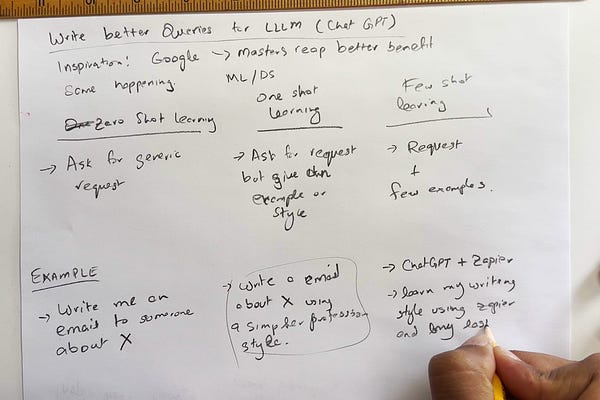 Write better Queries for LLLM (Chat GPT)
Inspiration! Google → Masters reap better benefit
Same happening.
ML/DS
Zero Shot learning
→ Ask for generic
request
One shot
learning
→ Ask for request
but give an
example or
style
Few shot
learing
→ Request
+
few examples.
EXAMPLE
→ Write me an
email to someone
about X
→ Write a email
about X using
a simpler profession
style.
→ ChatGPT + Zapier
→ learn my writing
style using Zapier
and my last